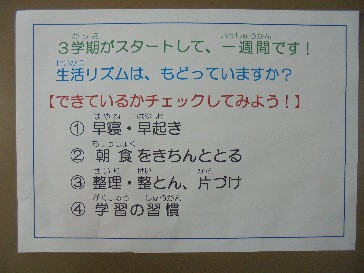 3学期がスタートして、一週間です！
生活リズムは、もどっていますか？
【できているかチェックしてみよう！】
① 早寝・早起き
② 朝食をきちんととる
③ 整理・整とん、片づけ
④ 学習の習慣